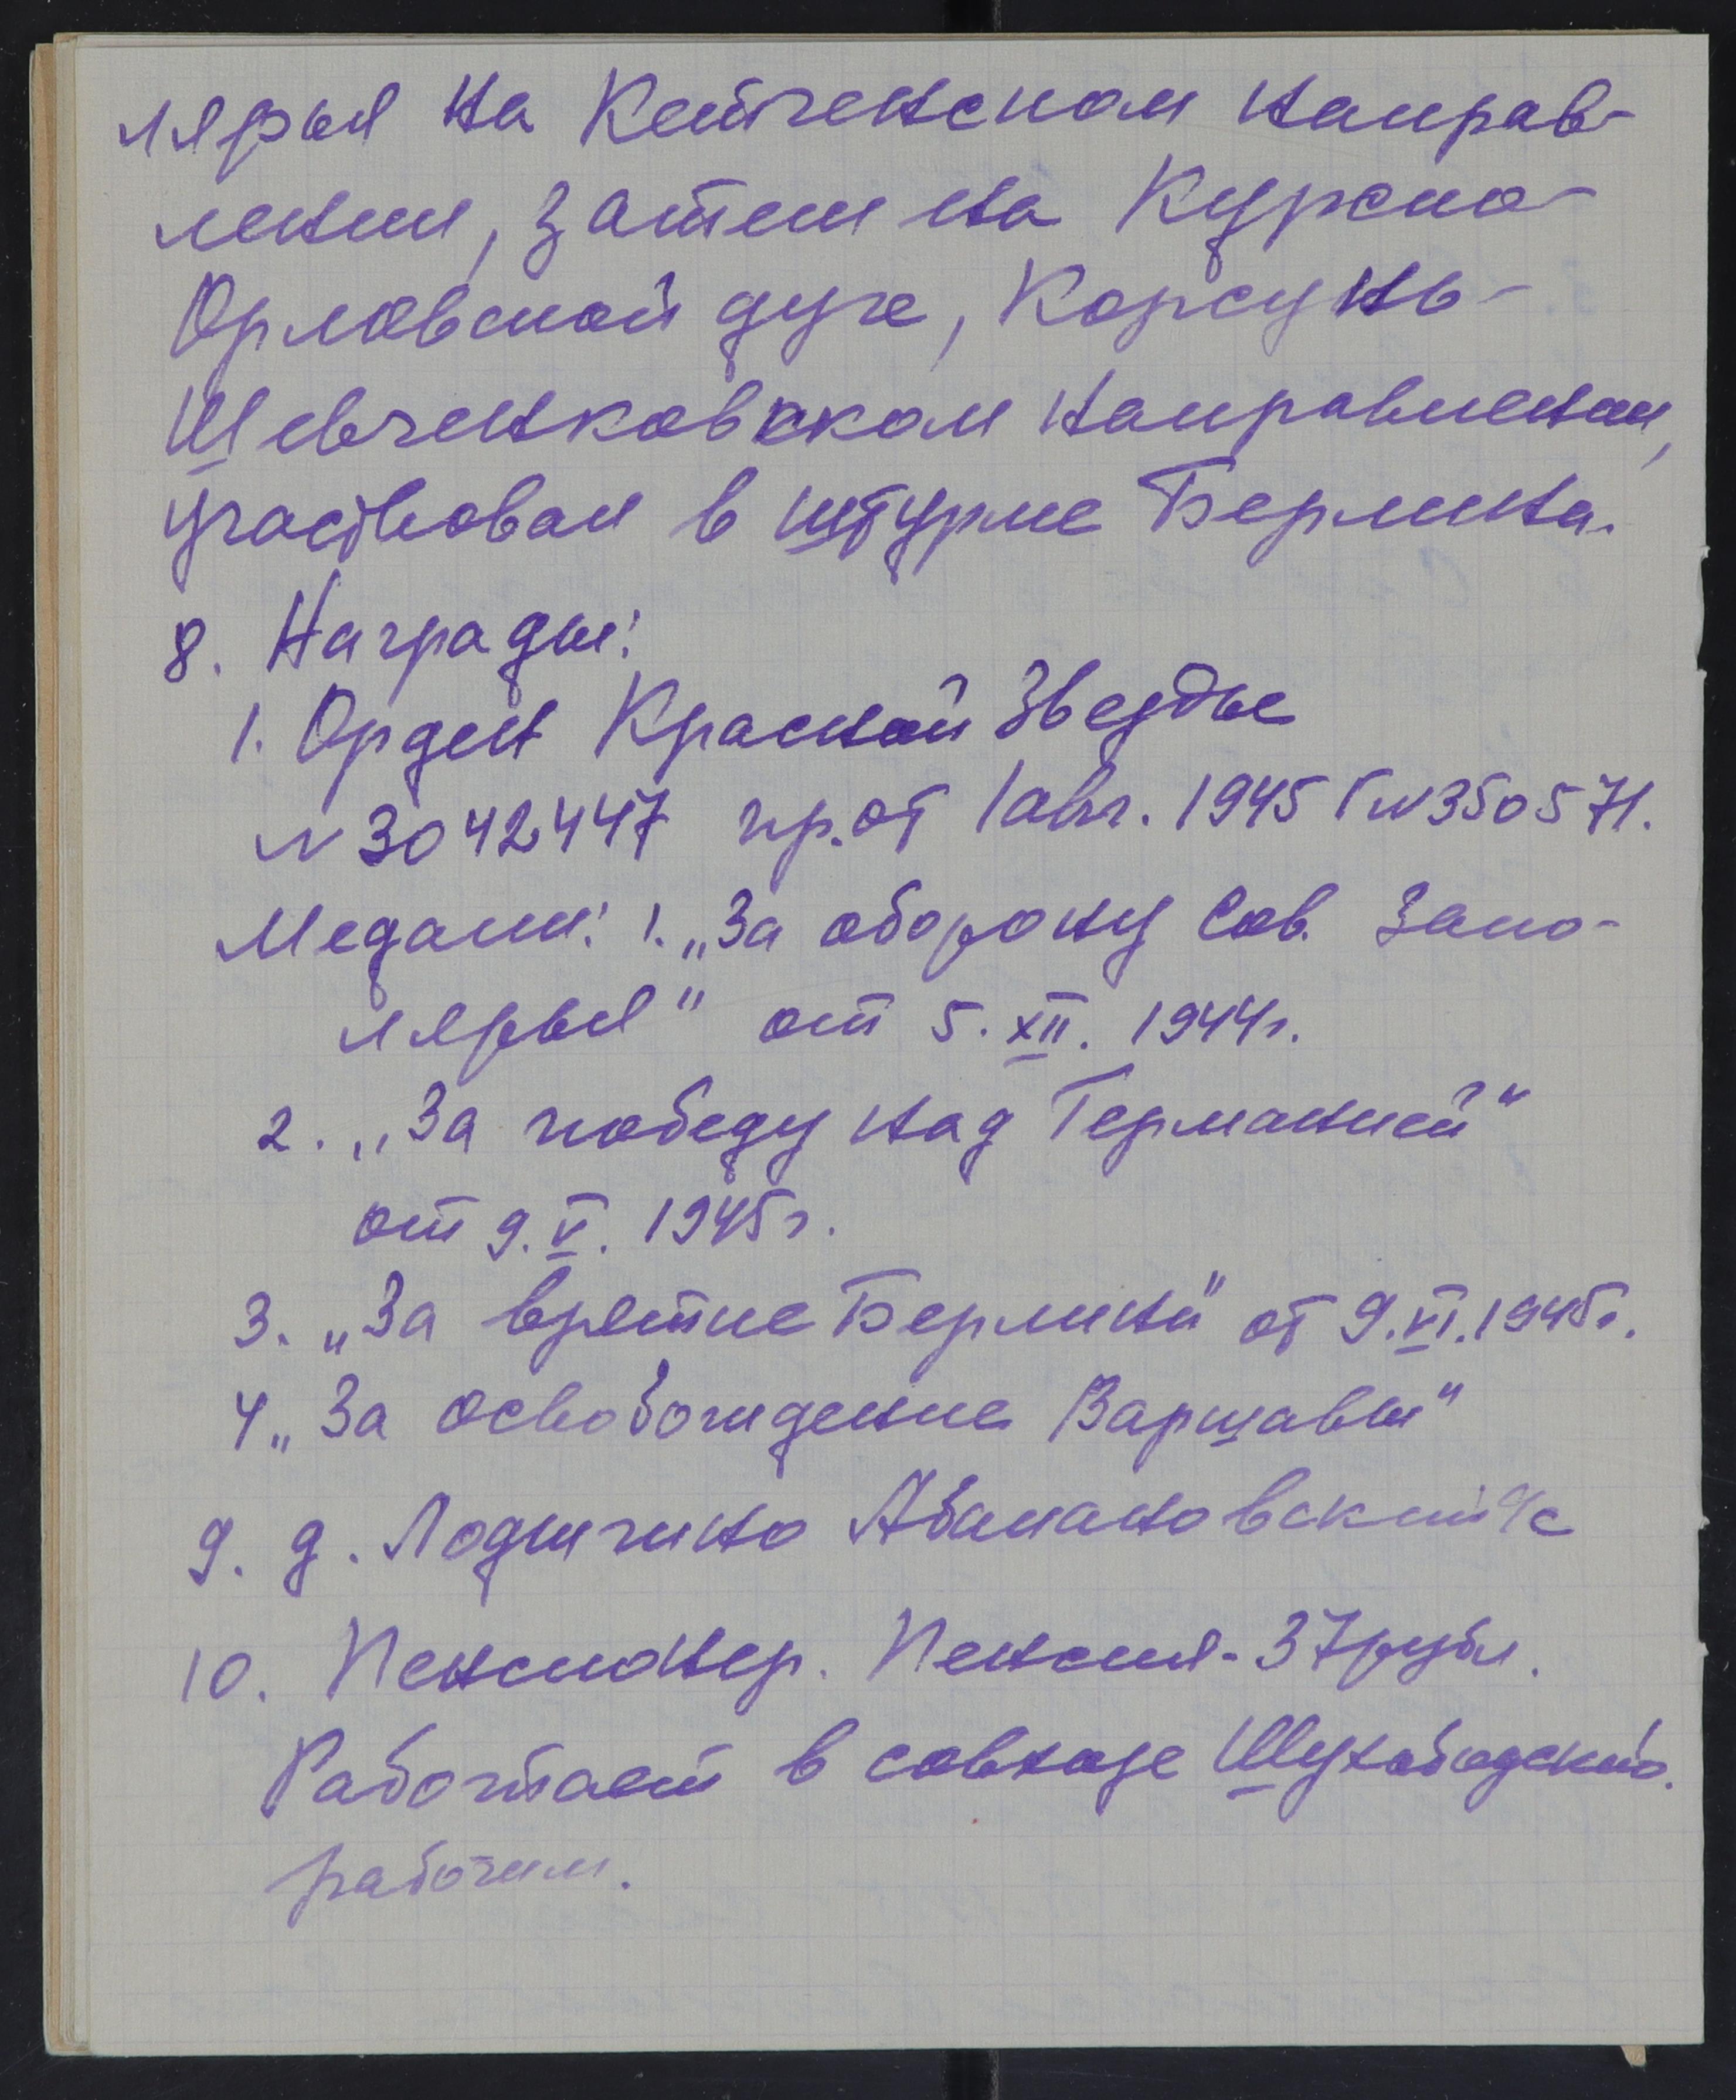 лярья на Кейтгенском направ-
лении, затем на Курско-
Орловской дуге, Корсунь-
Шевченковском направлении,
участвовал в штурме Берлина.
8. Награды:
1. Орден Красной Звезды
№3042447 пр. от 1 авг. 1945 г №350571.
Медали: 1. „За оборону Сов. Запо-
лярья" от 5. XII. 1944г.
2. „За победу над Германией"
от 9. V. 1945г.
3. „За взятие Берлина" от 9. VI. 1945г.
4 „За освобождение Варшавы"
9. д. Аба­кановский с/с
10. Пенсионер. Пенсия - 37 рубл.
Работает в совхозе Шухободский.
рабочим.